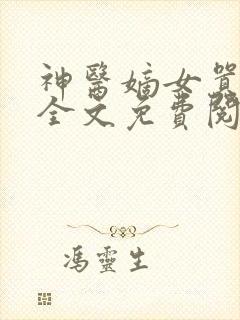 神醫嫡女
全文免費閱
馮靈生